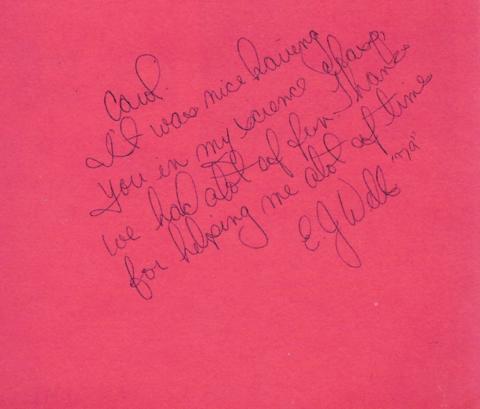 Carol.
It was nice having
you in my science class,
we had alot of fun. Thanks
for helping me alot of time
E.J. Webb "79"